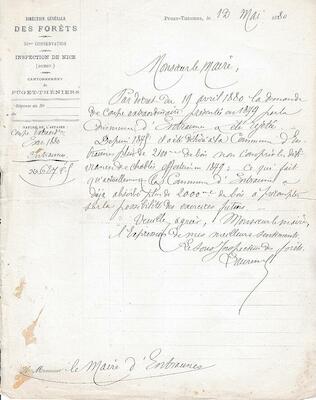 DIRECTION GÉNÉRALE
DES FORÊTS
CONSERVATION
INSPECTION DE NICE
(NORD)
CANTONNEMENT
DE
PUGET-THÉNIERS
Réponse au No
NATURE DE L'AFFAIRE
Entraunes
PUGET-THÉNIERS, le 12 Mai 1880
Monsieur le Maire,
Par décret du 19 avril 1880 la demande
de Coupe extraordinaire présentée en 1879 par la
Commune d'Entraunes a été rejetée
Depuis il a été délivré à la Commune d'En-
traunes plus de 2100 mc de bois non compris la déli-
vrance de chablis effectuée en 1879; ce qui fait
qu'actuellement la Commune d'Entraunes a
déjà absorbé plus de 2000 mc de bois à précompter
sur la possibilité des exercices futurs.
Veuillez agréer, Monsieur le maire,
l'expression de mes meilleurs sentiments.
Le Sous Inspecteur des forêts.
A Monsieur le Maire d'Entraunes